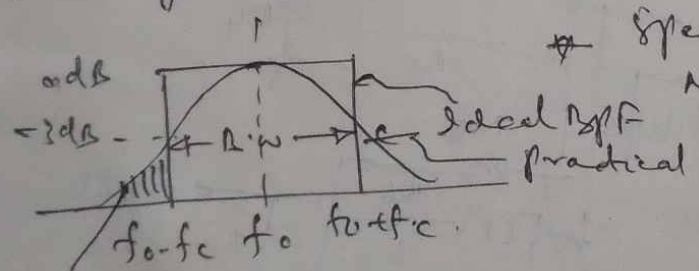 Spe
0dB
-3dB
B.W
Ideal BPF
Practical
f0-fc f0 f0+fc.